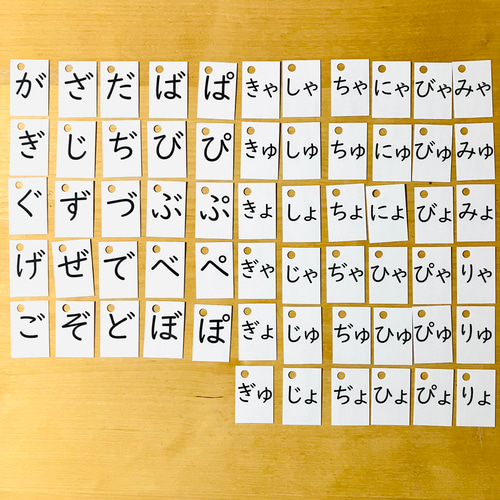 が ざ だ ば ぱ きゃ しゃ ちゃ にゃ びゃ みゃ
ぎ じ ぢ び ぴ きゅ しゅ ちゅ にゅ びゅ みゅ
ぐ ず づ ぶ ぷ きょ しょ ちょ にょ びょ みょ
げ ぜ で べ ぺ ぎゃ じゃ ぢゃ ひゃ ぴゃ りゃ
ご ぞ ど ぼ ぽ ぎょ じゅ ぢゅ ひゅ ぴゅ りゅ
ぎゅ じょ ぢょ ひょ ぴょ りょ